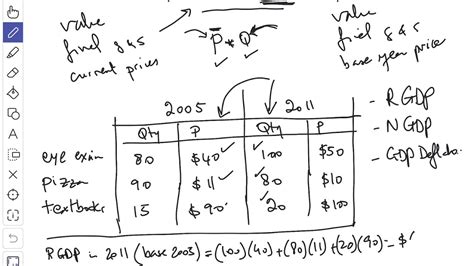 value
final g & s
current prices
P * Q
value
final g & s
base year price
2005 2011
Qty P Qty P
eye exam 80 $40 100 $50
pizza 90 $11 80 $10
textbooks 15 $90 20 $100
- RGDP
- NGDP
- GDP Defla
RGDP in 2011 (base 2005) = (100)(40) + (80)(11) + (20)(90) = $